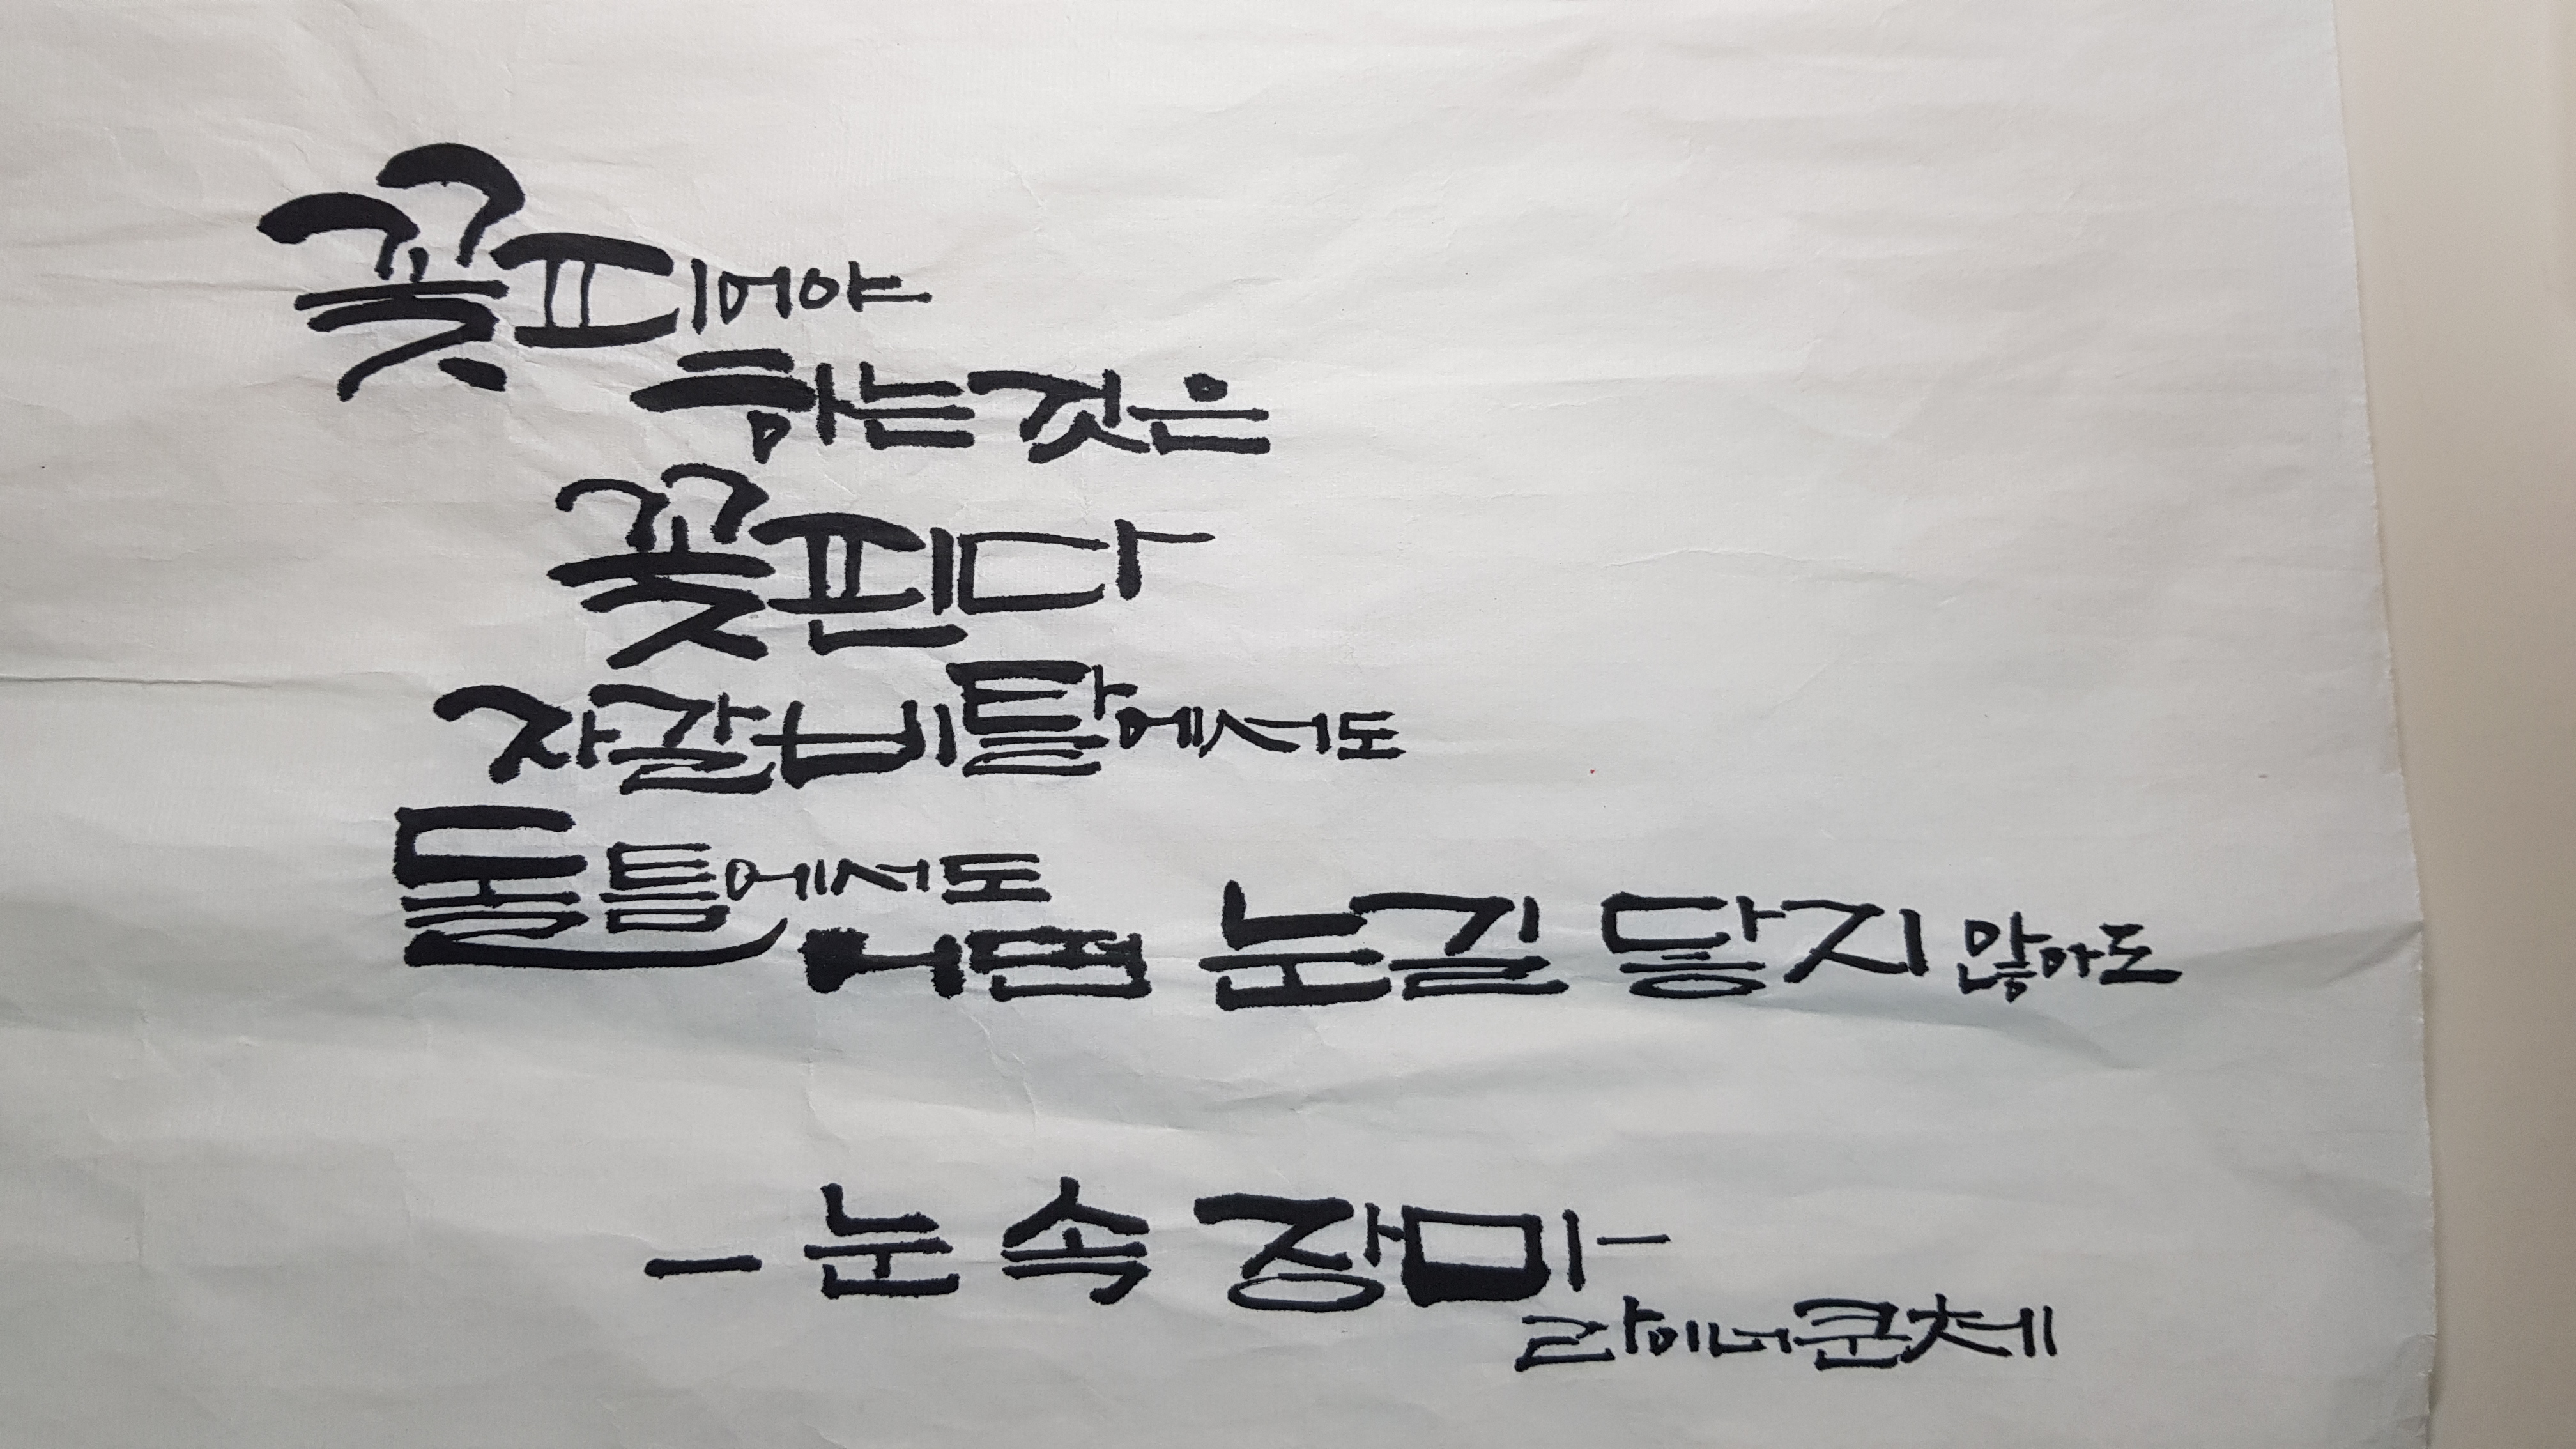 꽃피어야
하는것은
꽃핀다
자갈비탈에서도
돌틈에서도
어떤 눈길 닿지 않아도
- 눈 속 장미 -
라이너쿤체